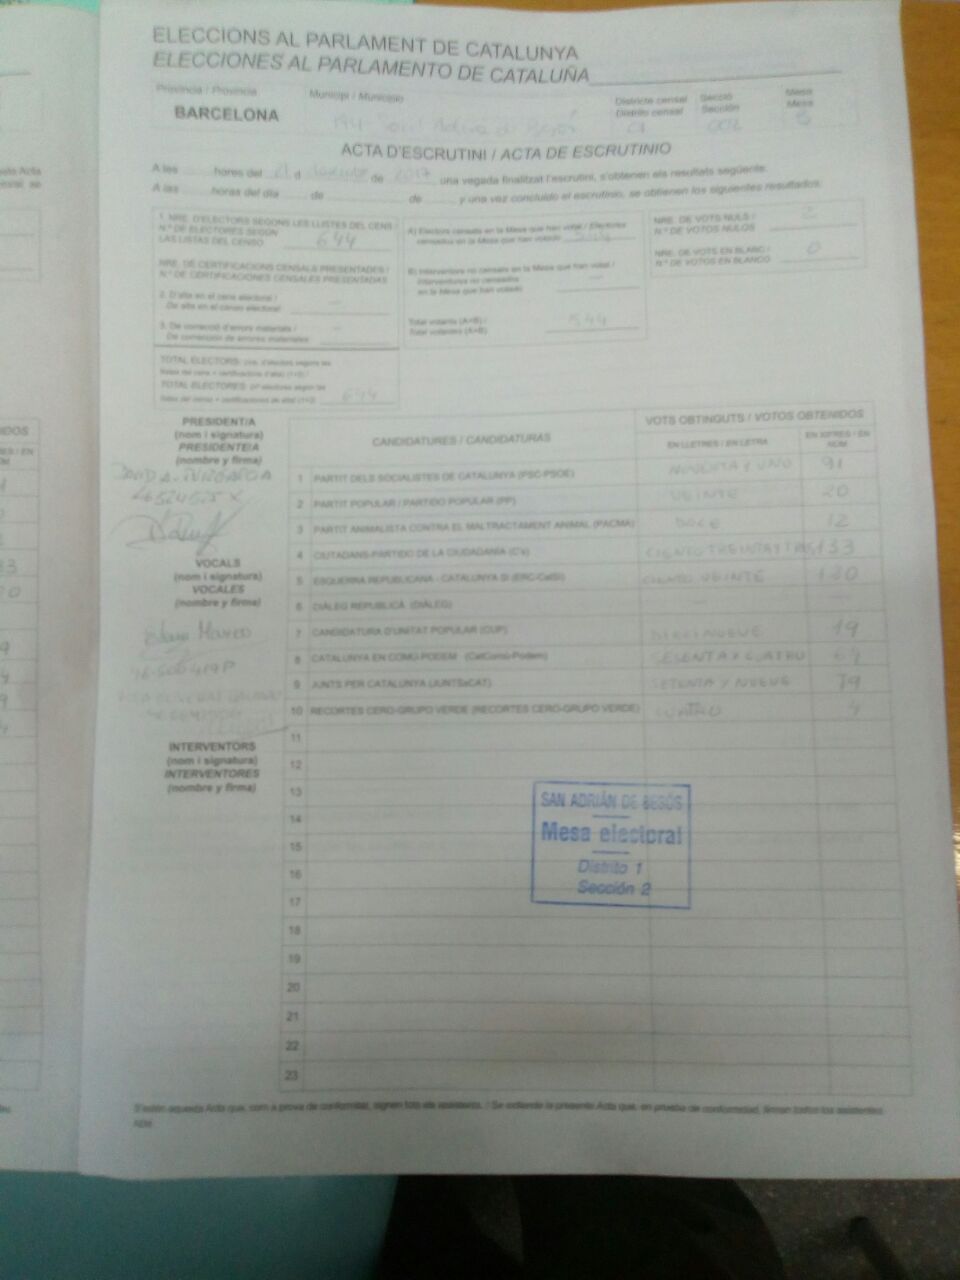 ELECCIONS AL PARLAMENT DE CATALUNYA
ELECCIONES AL PARLAMENTO DE CATALUÑA
Província / Provincia
Municipi / Municipio
Districte censal
Distrito censal
Secció
Sección
Mesa
Mesa
BARCELONA
ACTA D'ESCRUTINI / ACTA DE ESCRUTINIO
A les hores del 21 d de 2017 una vegada finalitzat l'escrutini, s'obtenen els resultats següents:
A las horas del día de de y una vez concluido el escrutinio, se obtienen los siguientes resultados:
1. NRE. D'ELECTORS SEGONS LES LLISTES DEL CENS /
N.º DE ELECTORES SEGÚN
LAS LISTAS DEL CENSO 644
NRE. DE CERTIFICACIONS CENSALS PRESENTADES /
N.º DE CERTIFICACIONES CENSALES PRESENTADAS
2. D'alta en el cens electoral /
De alta en el censo electoral -
3. De correcció d'errors materials /
De corrección de errores materiales -
TOTAL ELECTORS:
TOTAL ELECTORES: 644
A) Electors censats en la Mesa que han votat / Electores
censados en la Mesa que han votado 544
B) Interventors no censats en la Mesa que han votat /
Interventores no censados
en la Mesa que han votado -
Total votants (A+B) /
Total votantes (A+B) 544
NRE. DE VOTS NULS /
N.º DE VOTOS NULOS 2
NRE. DE VOTS EN BLANC /
N.º DE VOTOS EN BLANCO 0
PRESIDENT/A
(nom i signatura)
PRESIDENTE/A
(nombre y firma)
VOCALS
(nom i signatura)
VOCALES
(nombre y firma)
INTERVENTORS
(nom i signatura)
INTERVENTORES
(nombre y firma)
CANDIDATURES / CANDIDATURAS
VOTS OBTINGUTS / VOTOS OBTENIDOS
EN LLETRES / EN LETRA
EN XIFRES / EN NÚM
1 PARTIT DELS SOCIALISTES DE CATALUNYA (PSC-PSOE) NOVENTA Y UNO 91
2 PARTIT POPULAR / PARTIDO POPULAR (PP) VEINTE 20
3 PARTIT ANIMALISTA CONTRA EL MALTRACTAMENT ANIMAL (PACMA) DOCE 12
4 CIUTADANS-PARTIDO DE LA CIUDADANÍA (C's) CIENTO TREINTA Y TRES 133
5 ESQUERRA REPUBLICANA - CATALUNYA SÍ (ERC-CatSí) CIENTO VEINTE 120
6 DIÀLEG REPUBLICÀ (DIÀLEG) -
7 CANDIDATURA D'UNITAT POPULAR (CUP) DIECINUEVE 19
8 CATALUNYA EN COMÚ-PODEM (CatComú-Podem) SESENTA Y CUATRO 64
9 JUNTS PER CATALUNYA (JUNTSxCAT) SETENTA Y NUEVE 79
10 RECORTES CERO-GRUPO VERDE (RECORTES CERO-GRUPO VERDE) CUATRO 4
11
12
13
14
15
16
17
18
19
20
21
22
23
SAN ADRIÁN DE BESÓS
Mesa electoral
Distrito 1
Sección 2
S'estén aquesta Acta que, com a prova de conformitat, signen tots els assistents. / Se extiende la presente Acta que, en prueba de conformidad, firman todos los asistentes.